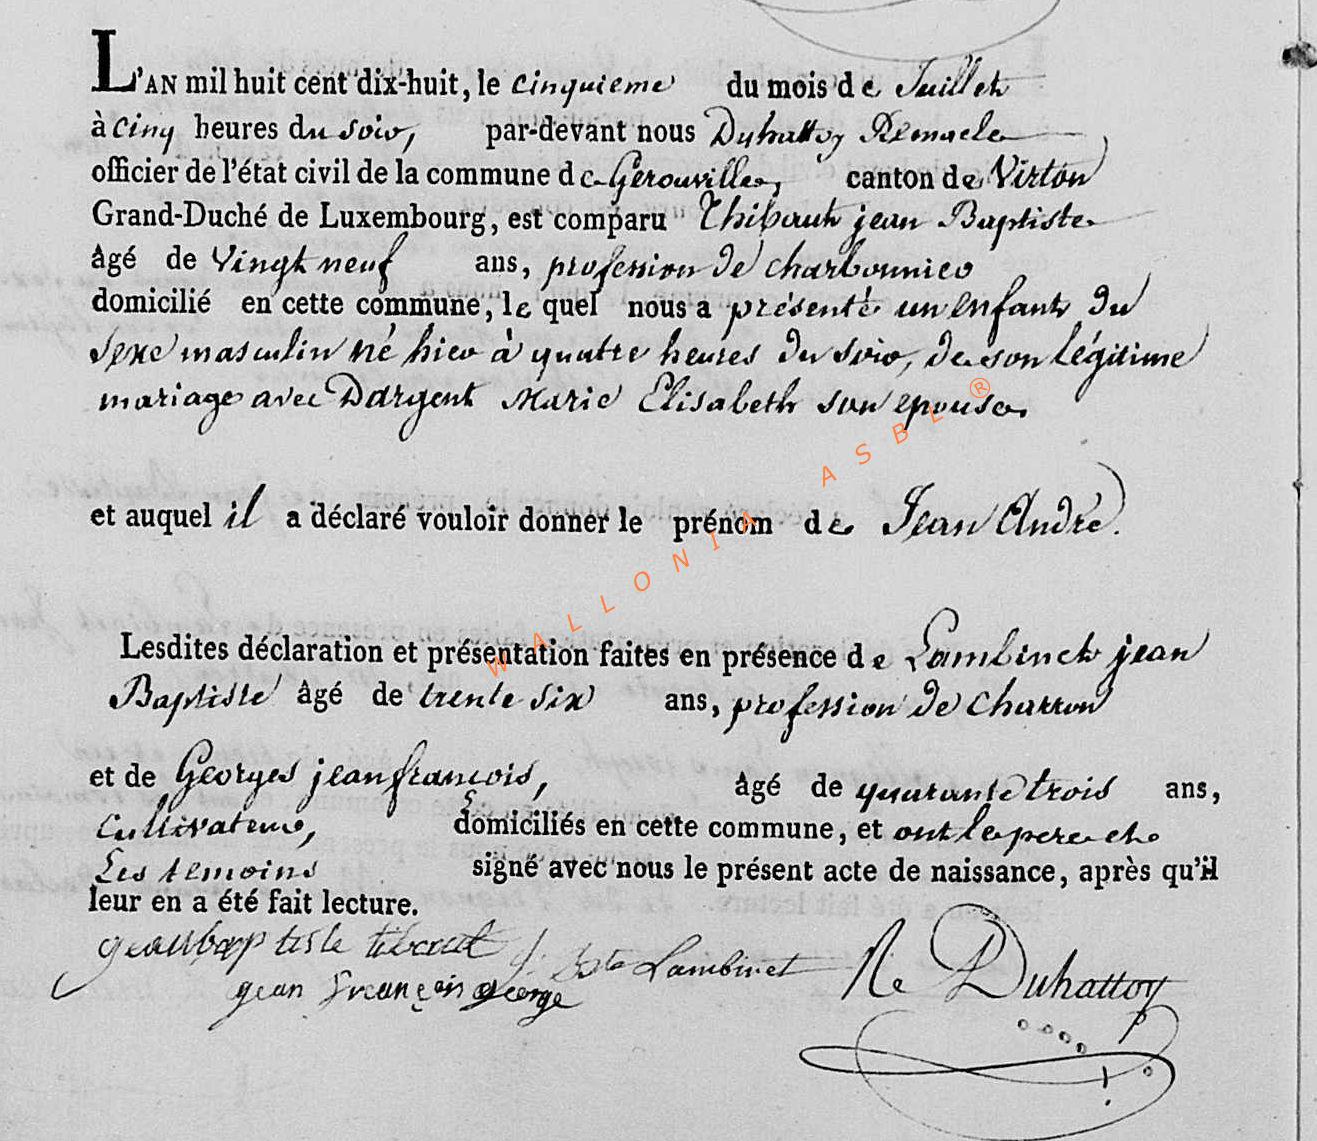 L'AN mil huit cent dix-huit, le cinquieme du mois de Juillet
à cinq heures du soir, par-devant nous Duhattoy Remacle
officier de l'état civil de la commune de Gerouville, canton de Virton
Grand-Duché de Luxembourg, est comparu Thibaut jean Baptiste
âgé de Vingt neuf ans, profession de charbonnier
domicilié en cette commune, le quel nous a présenté un enfant du
sexe masculin né hier à quatre heures du soir, de son légitime
mariage avec Dargent Marie Elisabeth son epouse.
et auquel il a déclaré vouloir donner le prénom de Jean André.
Lesdites déclaration et présentation faites en présence de Lambinet jean
Baptiste âgé de trente six ans, profession de charron
et de Georges jean françois, âgé de quarante trois ans,
Cultivateur, domiciliés en cette commune, et ont le pere et
Les temoins signé avec nous le présent acte de naissance, après qu'il
leur en a été fait lecture.
geanbaptiste tibeaut j. Bste Lambinet Re Duhattoy
gean françois george
WALLONIA ASBL ®